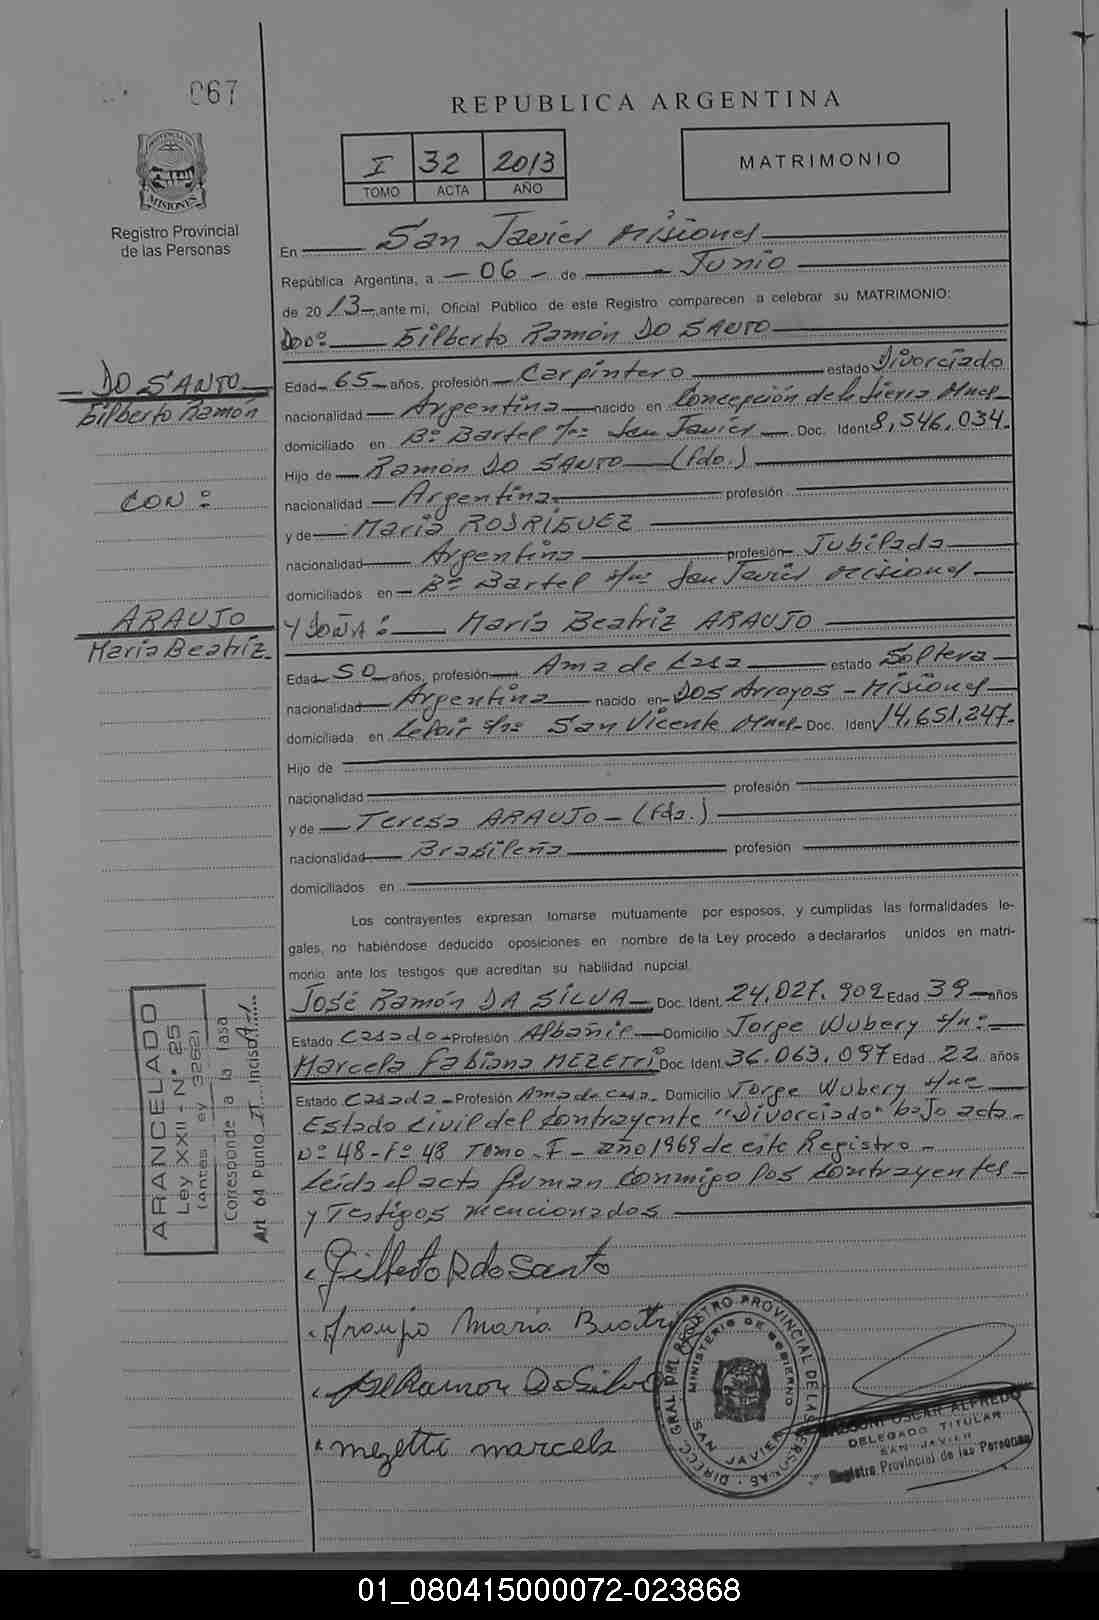 067
REPUBLICA ARGENTINA
I 32 2013
TOMO ACTA AÑO
MATRIMONIO
PROVINCIA DE
MISIONES
Registro Provincial
de las Personas
En San Javier Misiones
República Argentina, a - 06 - de Junio
de 2013 ante mi, Oficial Público de este Registro comparecen a celebrar su MATRIMONIO:
DON: Gilberto Ramón DO SANTO
DO SANTO
Gilberto Ramón
Edad 65 años, profesión Carpintero estado Divorciado
nacionalidad Argentina nacido en Concepción de la Sierra Mnes
domiciliado en Bº Bartel s/nº San Javier Doc. Ident 8,546,034.
Hijo de Ramón DO SANTO (fdo.)
CON:
nacionalidad Argentina profesión
y de María RODRIGUEZ
nacionalidad Argentina profesión Jubilada
domiciliados en Bº Bartel s/nº San Javier Misiones
ARAUJO
María Beatriz
Y DOÑA: María Beatriz ARAUJO
Edad 50 años, profesión Ama de Casa estado Soltera
nacionalidad Argentina nacido en DOS Arroyos - Misiones
domiciliada en s/nº San Vicente Mnes Doc. Iden 14,651,247.
Hijo de
nacionalidad profesión
y de Teresa ARAUJO - (fda.)
nacionalidad Brasileña profesión
domiciliados en
Los contrayentes expresan tomarse mutuamente por esposos, y cumplidas las formalidades le-
gales, no habiéndose deducido oposiciones en nombre de la Ley procedo a declararlos unidos en matri-
monio ante los testigos que acreditan su habilidad nupcial.
José Ramón DA SILVA Doc. Ident. 24.027.902 Edad 39 años
Estado Casado Profesión Albañil Domicilio Jorge Wubery s/nº
Marcela Fabiana MEZETTI Doc. Ident. 36.063.097 Edad 22 años
Estado Casada Profesión Ama de casa Domicilio Jorge Wubery s/nº
Estado Civil del Contrayente "Divorciado" bajo acta
Nº 48-Fº 48 Tomo - I - año 1969 de este Registro -
Leída el acta firman conmigo los contrayentes
y Testigos mencionados
ARANCELADO
Ley XXII - Nº 25
(Antes ey 3262)
Corresponde a la Tasa
Art 61 Punto II Inciso A-1
Gilberto R do Santo
Araujo Maria Beatriz
Ramon Da Silva
mezetti marcela
DIRECC. GRAL. DEL REGISTRO PROVINCIAL DE LAS PERSONAS
MINISTERIO DE GOBIERNO
SAN JAVIER
OSCAR ALFREDO
DELEGADO TITULAR
SAN JAVIER
Registro Provincial de las Personas
01_080415000072-023868